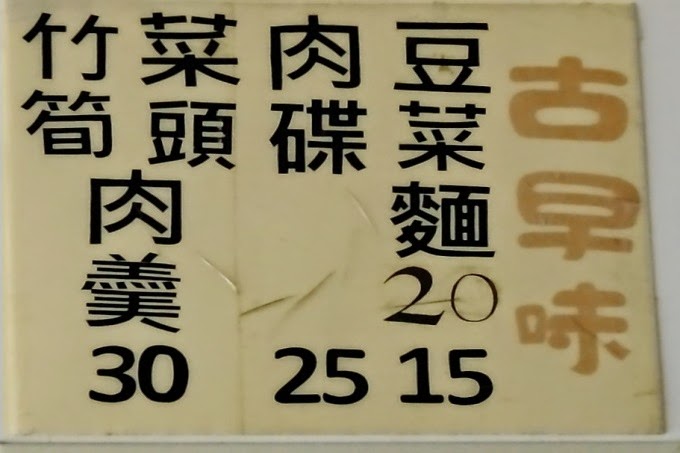 古早味
豆菜麵
20
15
肉碟
25
菜頭
竹筍
肉羹
30